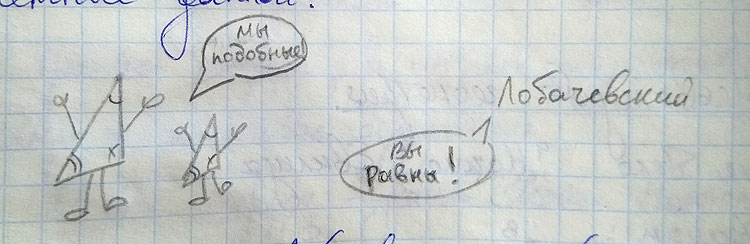 данной.
Мы
подобные!
Лобачевский
Вы
равны!